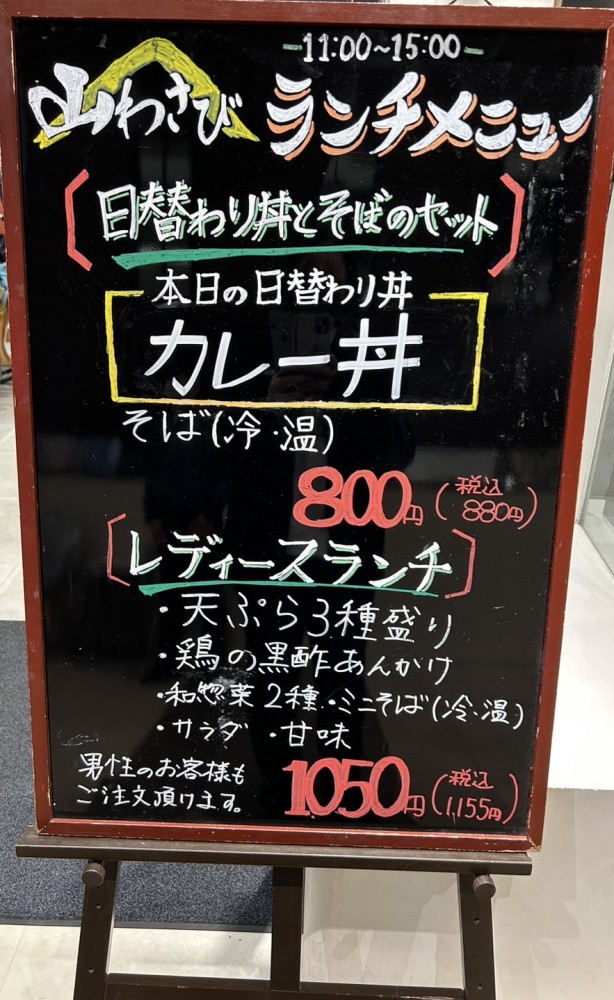 -11:00~15:00-
山わさび ランチメニュー
日替わり丼とそばのセット
本日の日替わり丼
カレー丼
そば(冷・温)
800円(税込880円)
レディースランチ
・天ぷら3種盛り
・鶏の黒酢あんかけ
・和惣菜2種・ミニそば(冷・温)
・サラダ ・甘味
男性のお客様も
ご注文頂けます。
1050円(税込1,155円)